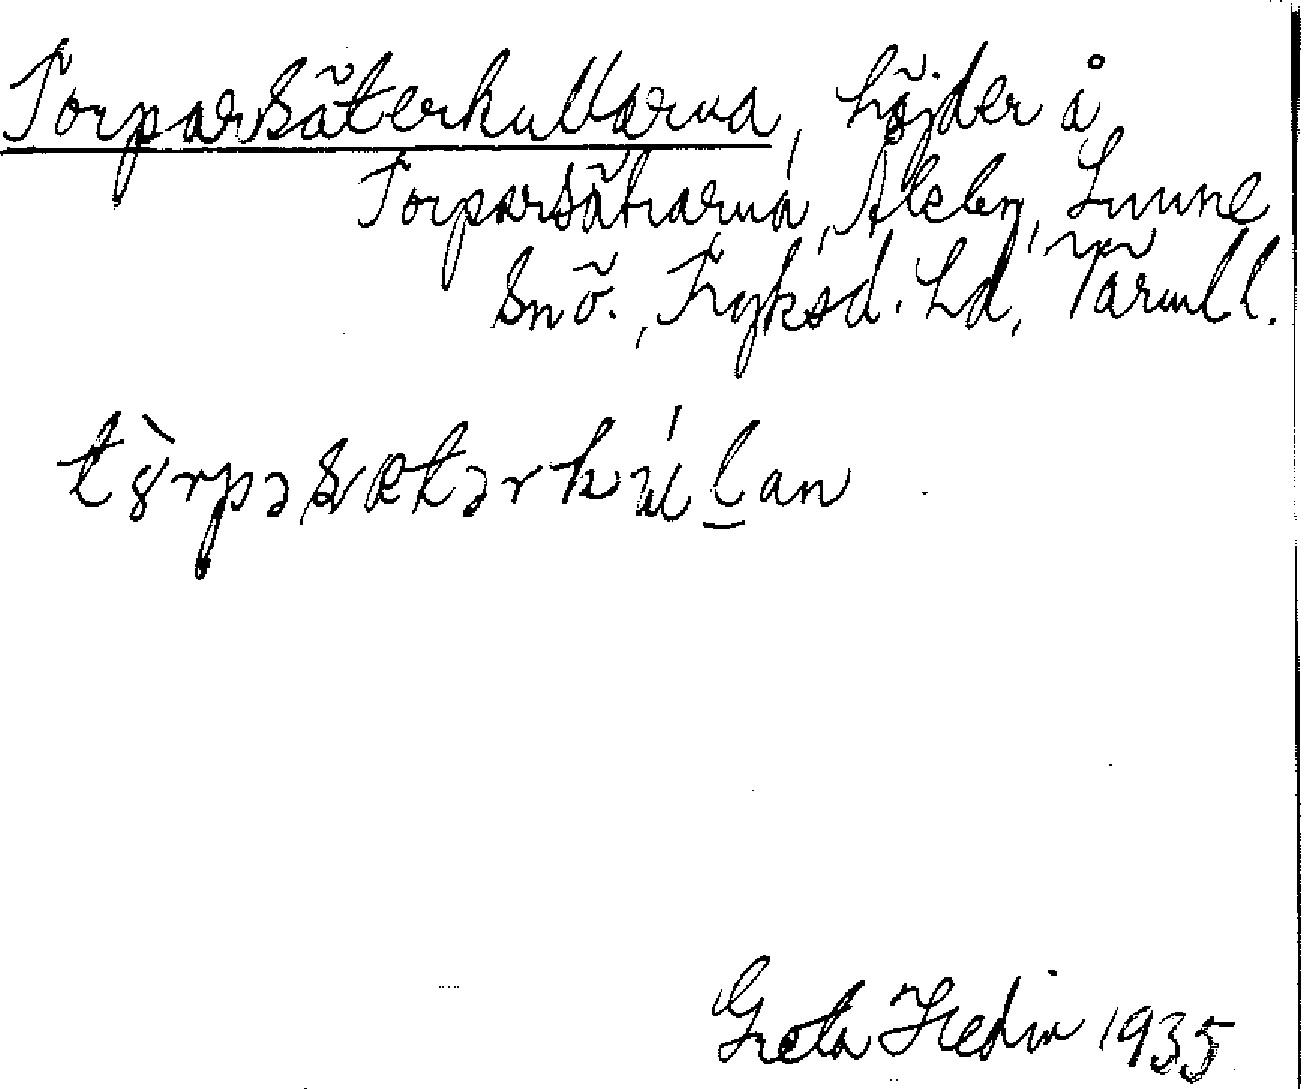 Torparsäterkullarna, höjder å
Torparsätrarna, Åleby, Sunne
snö., Fryksd. hd, Värml.
Greta Hedin 1935